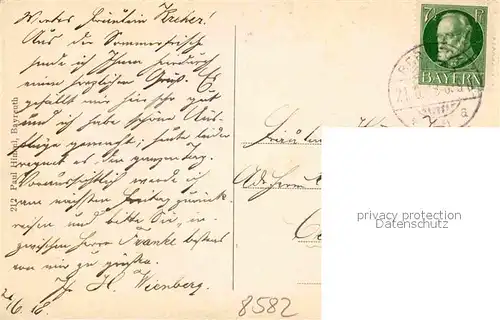 Wertes Fräulein Kreher!
Aus der Sommerfrische
sende ich Ihnen hierdurch
einen herzlichen Gruß. Es
gefällt mir hier sehr gut
und ich habe schöne Aus-
flüge gemacht; heute leider
regnet es den ganzen Tag.
Voraussichtlich werde ich
am nächsten Freitag zurück-
reisen und bitte Sie, in-
zwischen Herrn Franke bestens
von mir zu grüßen.
Ihr H. Wienberg.
6.16.
212 Paul Bayreuth
7½ Pf
BAYERN
Fräulein
Adr. Herrn
8582
privacy protection
Datenschutz